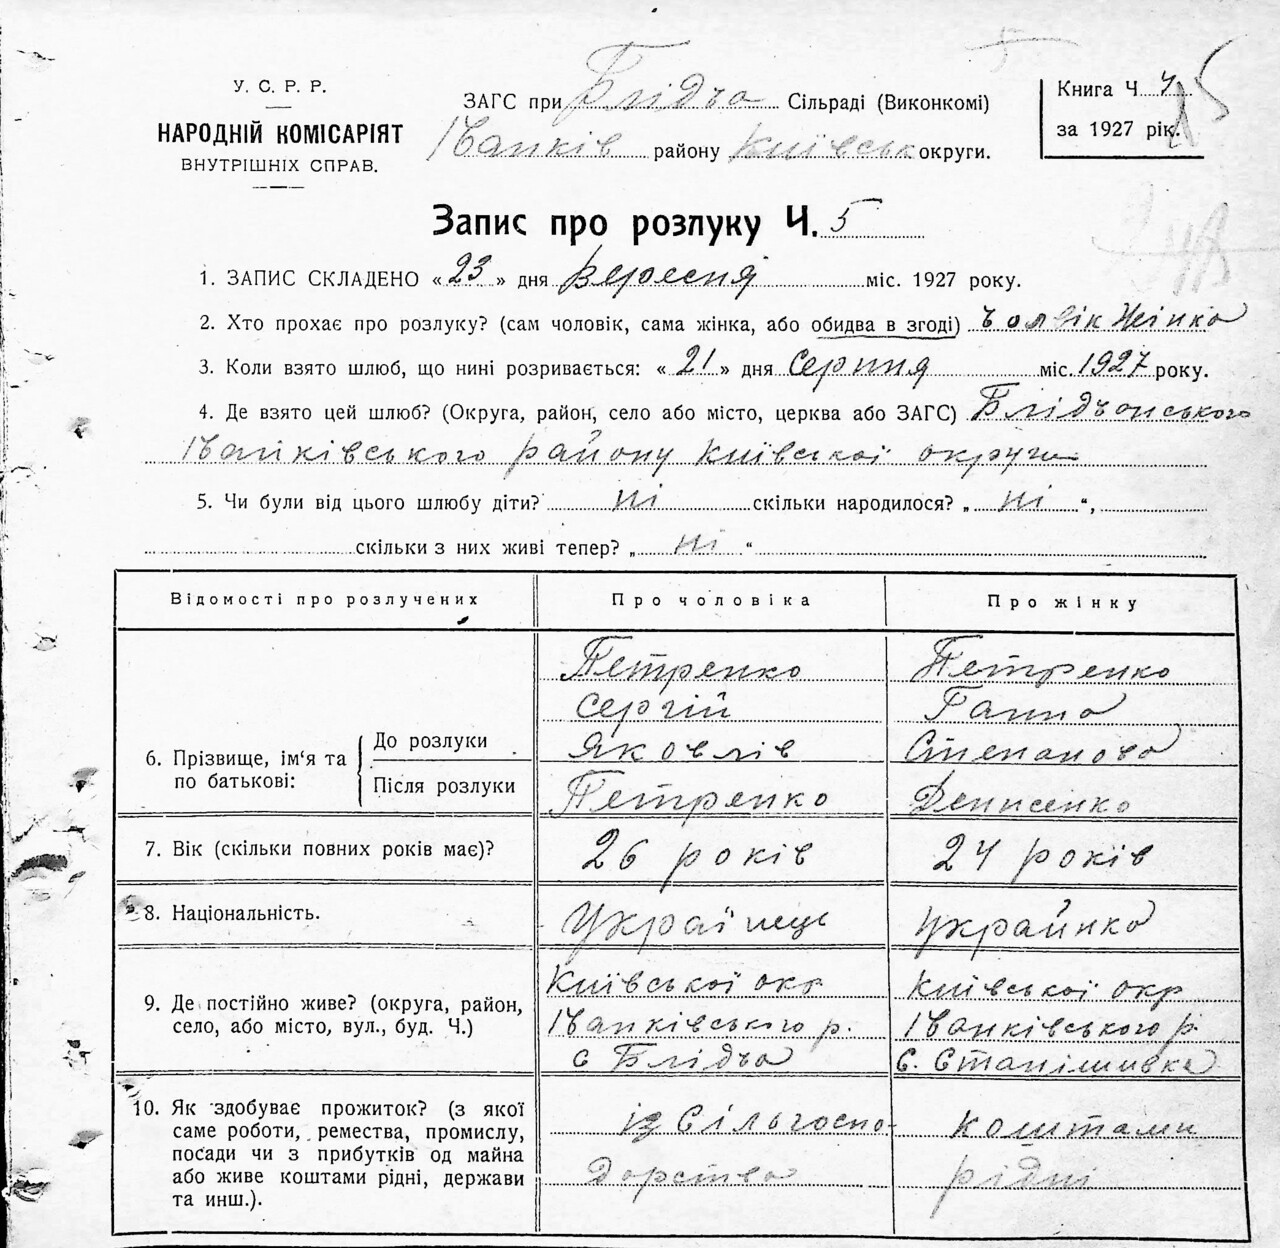 У. С. Р. Р.
НАРОДНІЙ КОМІСАРІЯТ
ВНУТРІШНІХ СПРАВ.
ЗАГС при Блідча Сільраді (Виконкомі)
Іванків району Київськ округи.
Книга Ч. 4
за 1927 рік.
15
Запис про розлуку Ч. 5
1. ЗАПИС СКЛАДЕНО « 23 » дня вересня міс. 1927 року.
2. Хто прохає про розлуку? (сам чоловік, сама жінка, або обидва в згоді) Чоловік Жінка
3. Коли взято шлюб, що нині розривається: « 21 » дня Серпня міс. 1927 року.
4. Де взято цей шлюб? (Округа, район, село або місто, церква або ЗАГС) Блідчанського
Іванківського району Київської округи
5. Чи були від цього шлюбу діти? ні скільки народилося? „ ні “,
скільки з них живі тепер? „ ні “
Відомості про розлучених Про чоловіка Про жінку
6. Прізвище, ім‘я та по батькові: До розлуки Після розлуки
Петренко
Сергій
Яковлів
Петренко
Петренко
Ганна
Степанова
Денисенко
7. Вік (скільки повних років має)? 26 років 24 років
8. Національність. Українець Українка
9. Де постійно живе? (округа, район,
село, або місто, вул., буд. Ч.)
Київської окр
Іванківського р.
с Блідча
Київської окр
Іванківського р.
с. Станішивка
10. Як здобуває прожиток? (з якої
саме роботи, ремества, промислу,
посади чи з прибутків од майна
або живе коштами рідні, держави
та инш.).
із Сільгоспо-
дарства
коштами
рідні